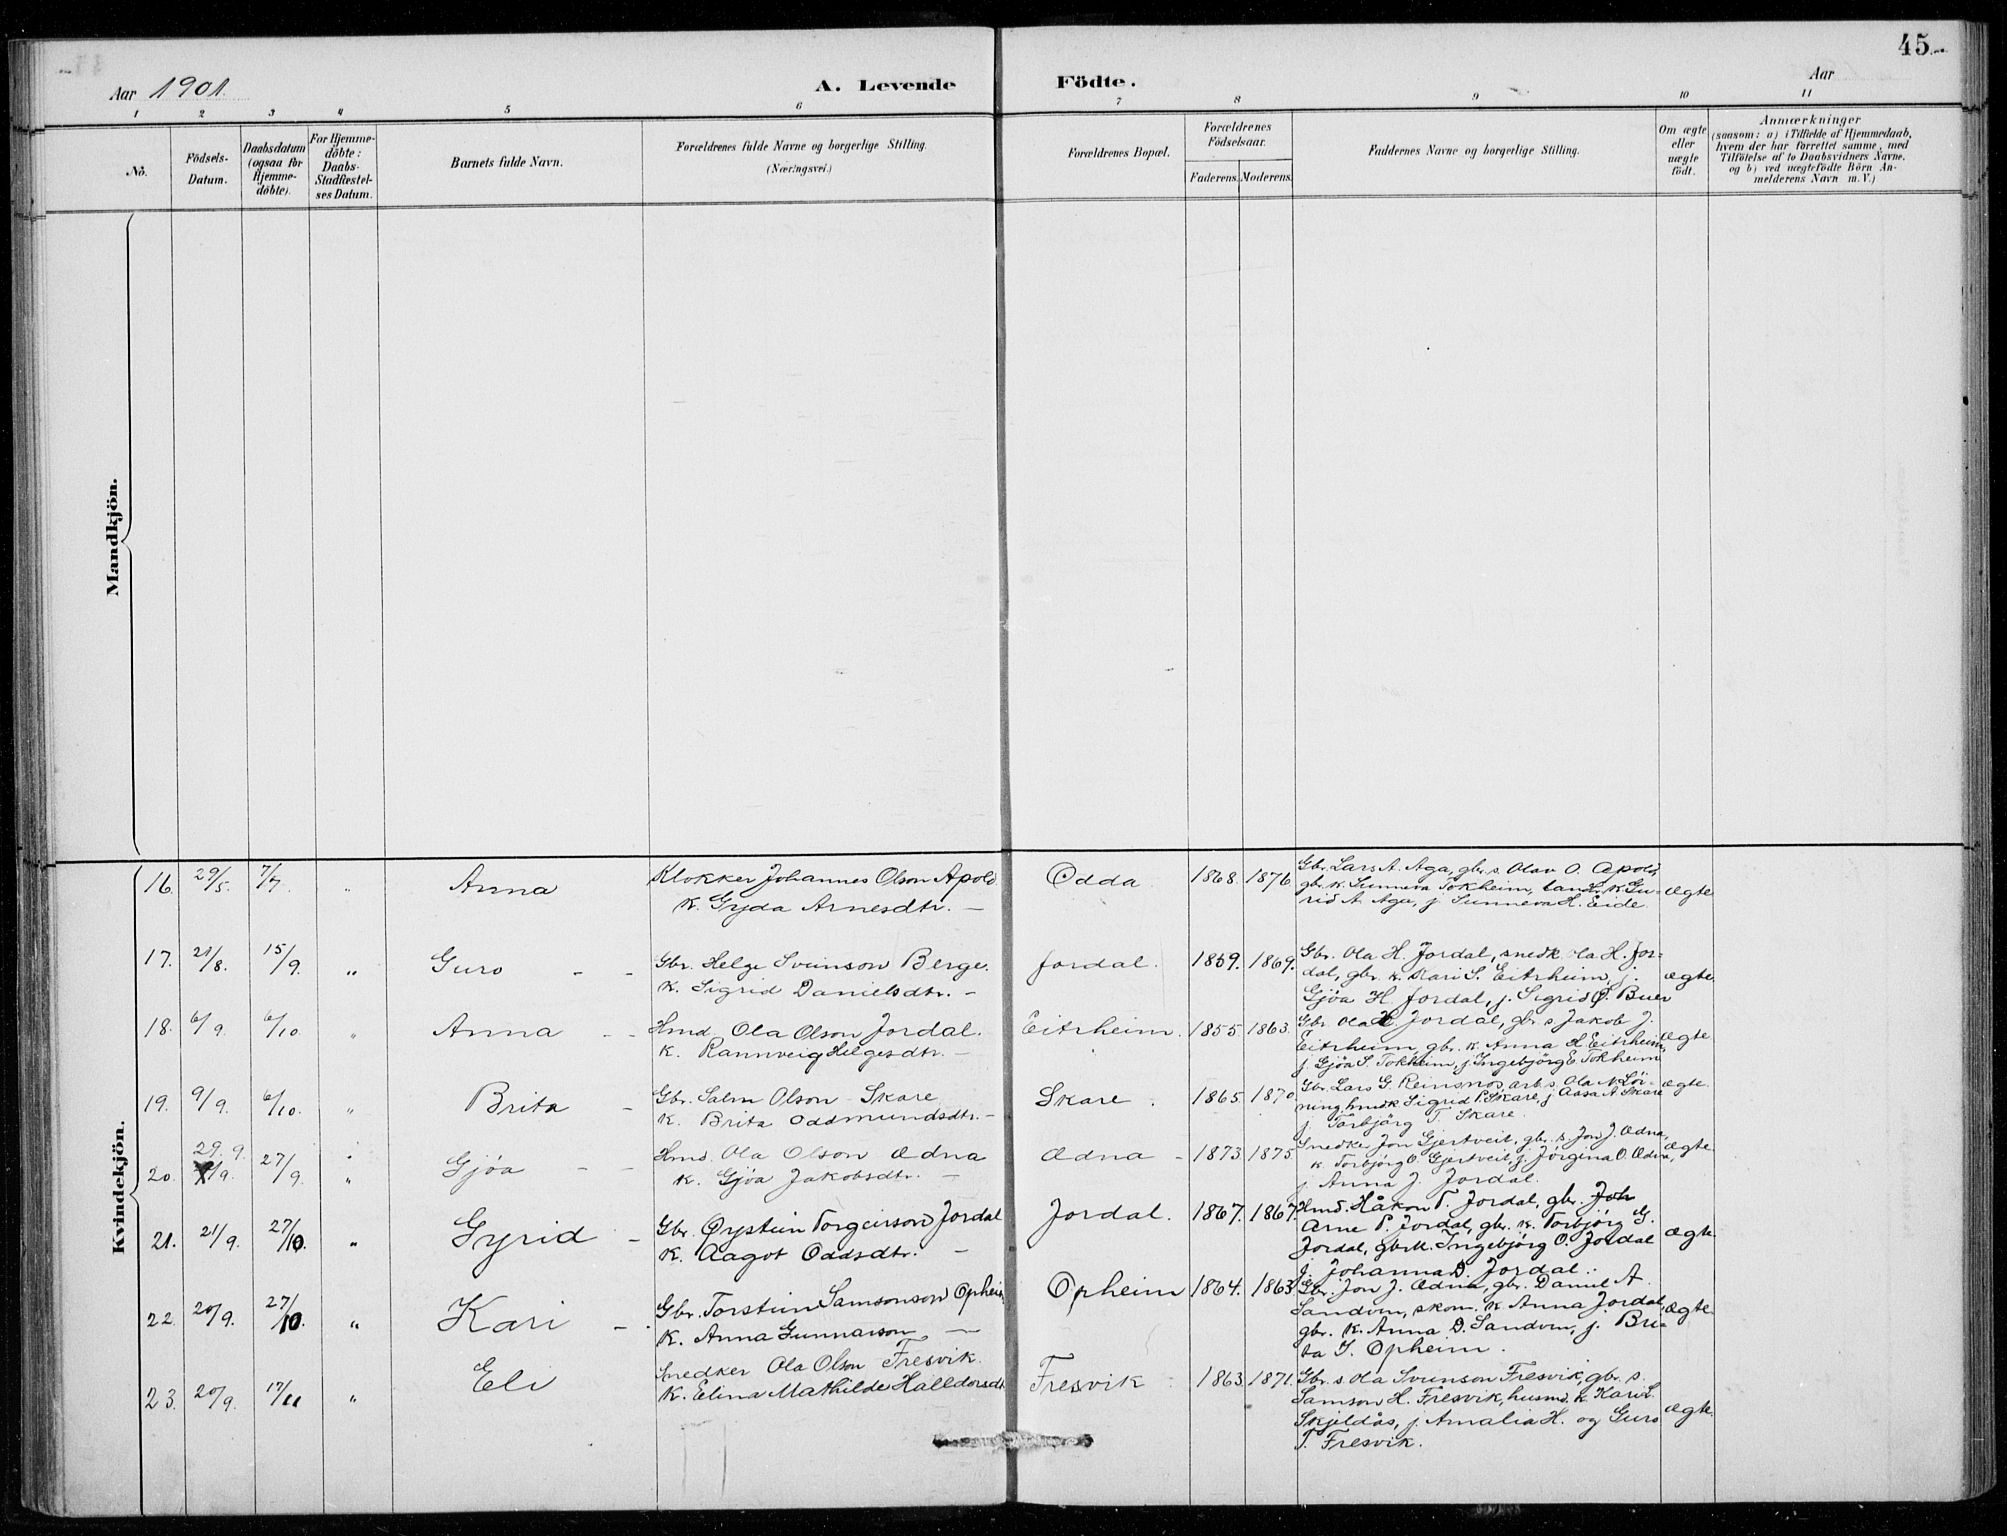 45.
Aar 1901.
A. Levende Födte.
Aar
1 2 3 4 5 6 7 8 9 10 11
No.
Födsels-
Datum.
Daabsdatum
(ogsaa for
Hjemme-
döbte).
For Hjemme-
döbte:
Daabs-
Stadfæstel-
ses Datum.
Barnets fulde Navn.
Forældrenes fulde Navne og borgerlige Stilling.
(Næringsvei.)
Forældrenes Bopæl.
Forældrenes
Födselsaar.
Faderens. Moderens.
Faddernes Navne og borgerlige Stilling.
Om ægte
eller
uægte
födt.
Anmærkninger
(saasom: a) i Tilfælde af Hjemmedaab,
hvem der har forrettet samme, med
Tilföielse af to Daabsvidners Navne,
og b) ved uægtefödte Börn An-
melderens Navn m. V.)
Mandkjön.
Kvindekjön.
16. 29/5. 7/7. " Anna
Klokker Johannes Olson Apold
k. Gyda Arnesdtr. —
Odda. 1868. 1876.
Gbr. Lars A. Aga, gbr. s. Olav O. Apold,
gbr. k. Sunneva Tokheim, k. Gu-
rid A. Aga, j. Sunneva H. Eide.
ægte
17. 21/8. 15/9. " Guro - -
Gbr. Helge Sveinson Berge.
k. Sigrid Danielsdtr. —
Jordal. 1859. 1869.
Gbr. Ola H. Jordal, snedk. Ola H. Jor-
dal, gbr. k. Kari S. Eitrheim, j.
Gjöa H. Jordal, j. Sigrid Buer
ægte.
18. 6/9. 6/10. " Anna - -
Hmd. Ola Olson Jordal.
k. Rannveig Helgesdtr. —
Eitrheim. 1855. 1863.
Gbr. Ola H. Jordal, gbr. s. Jakob J.
Eitrheim, gbr. k. Anna H. Eitrheim,
j. Gjöa S. Tokheim, j. Ingebjörg E. Tokheim
ægte
19. 9/9. 6/10. " Brita -
Gbr. Salm Olson Skare
k. Brita Oddmundsdtr. —
Skare. 1865. 1870.
Gbr. Lars G. Reinsnos, arb. s. Ola N. Löi-
ning, hmdk. Sigrid P. Skare, j. Aasa A. Skare
j. Torbjörg T. Skare.
ægte.
20. 29. 9. /9. 27/9. " Gjöa - -
Hmd. Ola Olson Ædna
k. Gjöa Jakobsdtr. —
Ædna - 1873. 1875
Snedker Jon Gjertveit, gbr. s. Jon J. Ædna,
k. Torbjörg O. Gjertveit, j. Jörgina O. Ædna,
j. Anna J. Jordal.
ægte.
21. 21/9. 27/10. " Gyrid -
Gbr. Øystein Torgeirson Jordal
k. Aagot Oddsdtr. —
Jordal. 1867. 1867.
Hmd. Håkon T. Jordal, gbr. Joh
Arne P. Jordal, gbr. k. Torbjörg G.
Jordal, gbr. k. Ingebjörg O. Jordal
j. Johanna D. Jordal.
ægte.
22. 20/9. 27/10. " Kari -
Gbr. Torstein Samsonson Opheim
k. Anna Gunnarson —
Opheim 1864. 1863.
Gbr. Jon J. Ædna, gbr. Daniel A.
Sandvin, skom. k. Anna Jordal,
gbr. k. Anna D. Sandvin, j. Bri-
ta T. Opheim.
ægte.
23. 20/9. 17/11 " Eli
Snedker Ola Olson Fresvik.
k. Elina Mathilde Halldorsdt.
Fresvik - 1863. 1871.
Gbr. s. Ola Sveinson Fresvik, gbr. s.
Samson H. Fresvik, husmd. k. Kari L.
Skjeldås, j. Amalia H. og Guro
T. Fresvik.
ægte.